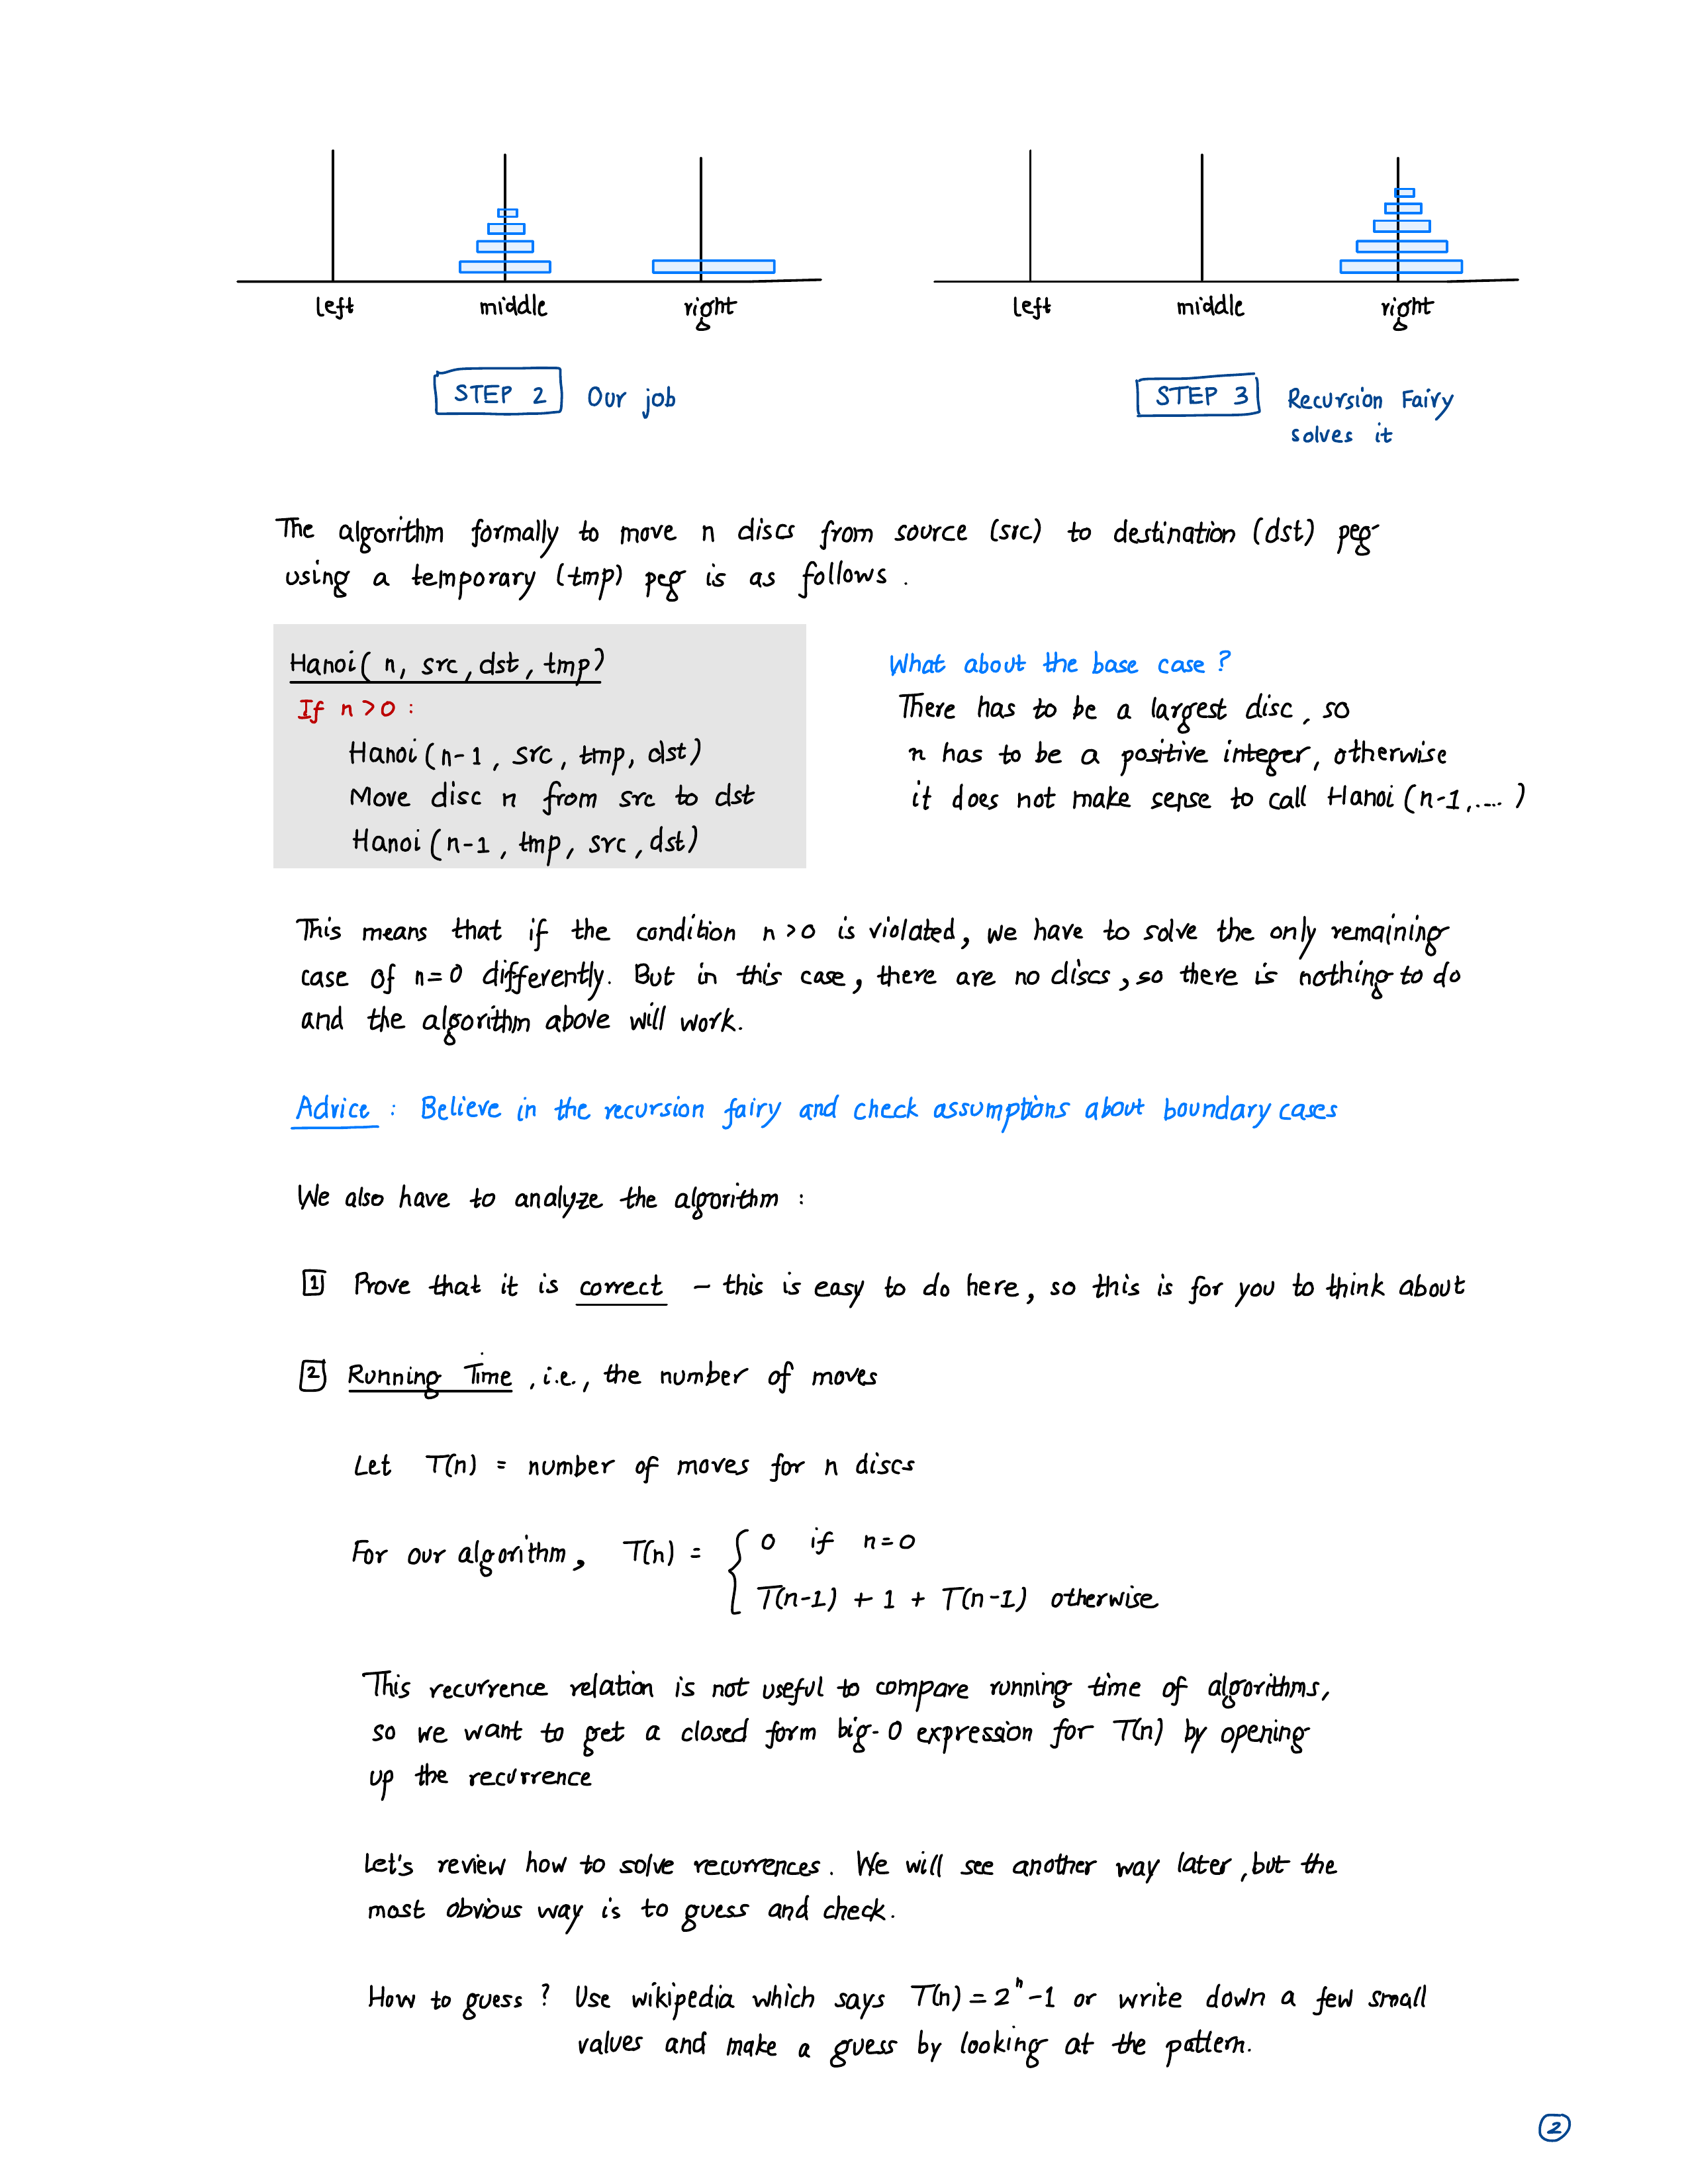 left middle right
left middle right
STEP 2 Our job
STEP 3 Recursion Fairy
solves it
The algorithm formally to move n discs from source (src) to destination (dst) peg
using a temporary (tmp) peg is as follows.
Hanoi( n, src, dst, tmp)
If n>0 :
Hanoi (n-1, src, tmp, dst)
Move disc n from src to dst
Hanoi (n-1, tmp, src, dst)
What about the base case?
There has to be a largest disc, so
n has to be a positive integer, otherwise
it does not make sense to call Hanoi (n-1, .... )
This means that if the condition n>0 is violated, we have to solve the only remaining
case of n=0 differently. But in this case, there are no discs, so there is nothing to do
and the algorithm above will work.
Advice : Believe in the recursion fairy and check assumptions about boundary cases
We also have to analyze the algorithm :
1 Prove that it is correct – this is easy to do here, so this is for you to think about
2 Running Time, i.e., the number of moves
Let T(n) = number of moves for n discs
For our algorithm, T(n) = { 0 if n=0
T(n-1) + 1 + T(n-1) otherwise
This recurrence relation is not useful to compare running time of algorithms,
so we want to get a closed form big-O expression for T(n) by opening
up the recurrence
Let's review how to solve recurrences. We will see another way later, but the
most obvious way is to guess and check.
How to guess? Use wikipedia which says T(n) = 2ⁿ-1 or write down a few small
values and make a guess by looking at the pattern.
2